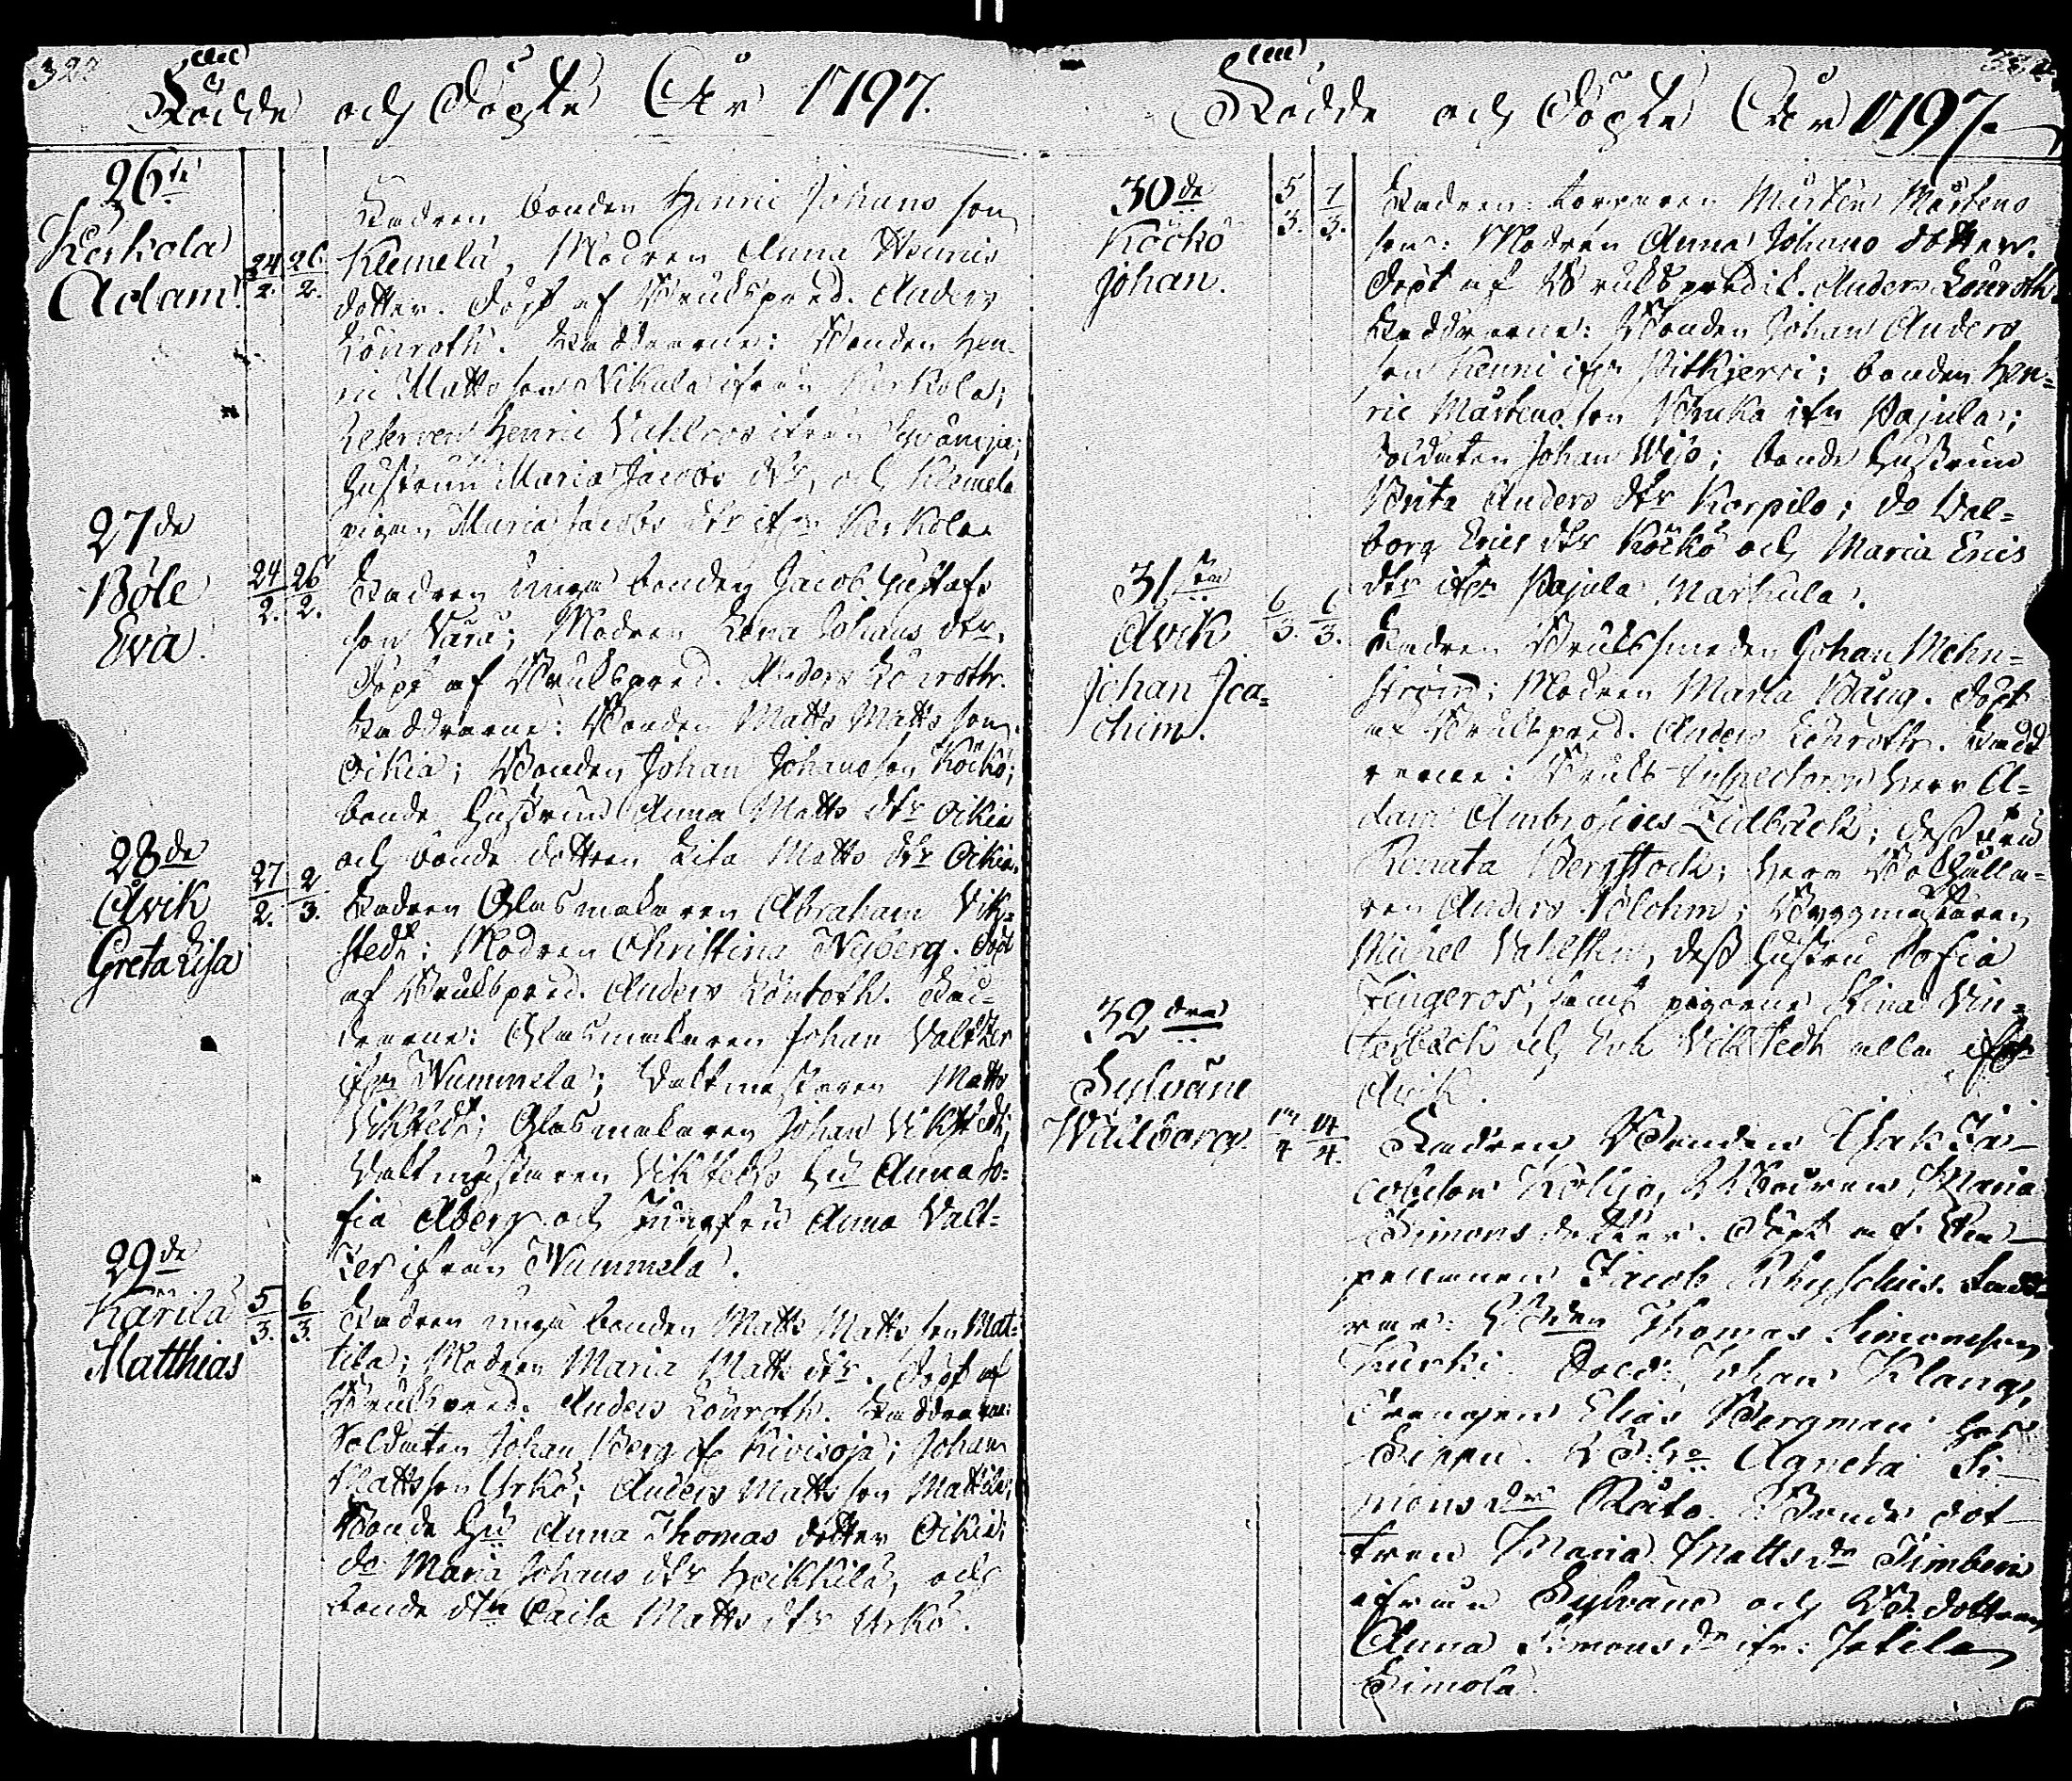 Födde och Döpte År 1797.
26te
Kerkola
Adam.
24/2. 26/2.
Fadren bonden Henric Johans son
Klemelä, Modren Anna Henrics
dotter. Döpt af Brukspred. Anders
Lönroth. Faddrarne: Bonden Hen-
ric Matts son Vikala ifrån Kerkola;
Henric Vahlroos ifrån
Hustrun Maria Jacobs dtr, och Klemelä
pigan Maria Jacobs dtr ifrn Kerkola
27de
Böle
Eva.
24/2. 26/2.
Fadren unga bonden Jacob Gustafs
son Varu; Modren Lena Johans dtr.
Döpt af Brukspred. Anders Lönroth.
Faddrarne: Bonden Matts Matts son
Oikia; Bonden Johan Johans son Köckö;
bonde Hustrun Anna Matts dtr Oikia
och bonde dottren Lisa Matts dtr Oikia.
28de
Åvik
Greta Lisa
27/2. 2/3.
Fadren Glasmakaren Abraham Vik-
stedt; Modren Christina Nyberg. Döpt
af Brukspred. Anders Lönroth. Fad-
drarne: Glasmakaren Johan Valtter
ifrn Nummela; Valtmästaren Matts
Vikstedt; Glasmakaren Johan Vikstedt;
Valtmästaren Vikstedts Hu Anna So-
fia Åberg och Jungfru Anna Valt-
ter ifrån Nummela.
29de
Kärilä
Matthias
5/3. 6/3.
Fadren unga bonden Matts Matts son Mat-
tila; Modren Maria Matts dtr. Döpt af
Brukspred. Anders Lönroth. Faddrarne:
Soldaten Johan Berg if Kivisoja; Johan
Matts son Urko; Anders Matts son Mattila;
Bonde Hu Anna Thomas dotter Oikia;
do Maria Johans dtr Heikkilä, och
bonde dtn Caisa Matts dtr Urko.
Födde och Döpte År 1797.
30de
Köckö
Johan.
5/3. 7/3.
Fadren: torparen Mårten Mårtens
son: Modren Anna Johans dotter.
Döpt af Brukspredik. Anders Lönroth.
Faddrarne: Bonden Johan Anders
son Kenni ifrn Pitkjerri; bonden Hen-
ric Mårtens son ifrn Pajula;
Soldaten Johan Wijs; bonde Hustrun
Brita Anders dtr Korpilo; do Val-
borg Erics dtr Köckö och Maria Erics
dtr ifrn Pajula Markula.
31sta
Åvik
Johan Joa-
chim.
6/3. 6/3.
Fadren Bruksmeden Johan Mehn-
ström; Modren Maria Baug. Döpt
af Brukspred. Anders Lönroth. Fadd-
rarne: Bruks-Inspectoren Herr A-
dam Ambrosius Zidbäck; dess Fru
Renata Bergstock; Herr Bokhålla-
ren Anders Blohm; Byggmästaren
Michel Vahlsten, dess Hustru Sofia
Fingeroos, samt pigorna Stina Vin-
terbäck och Eva Vikstedt alla ifrn
Åvik.
32dra
Sylväne
Wallborg.
14/4.
Fadren Bonden Isak Ja-
cobsson Kolija, Modren Maria
Simons dotter. Döpt af Ca-
pellanen Jacob. Fadd-
rar: Bden Thomas Simonsson
Kurki. Sold: Johan Klang,
Drengen Elias Bergman hos
Sippu. B Hu Agneta Si-
mons dr Räto. Bonde dot-
tren Maria Matts dr Simberi
ifrån Sylväne och B. dottren
Anna Simons dr ifr: Jatila
Simola.